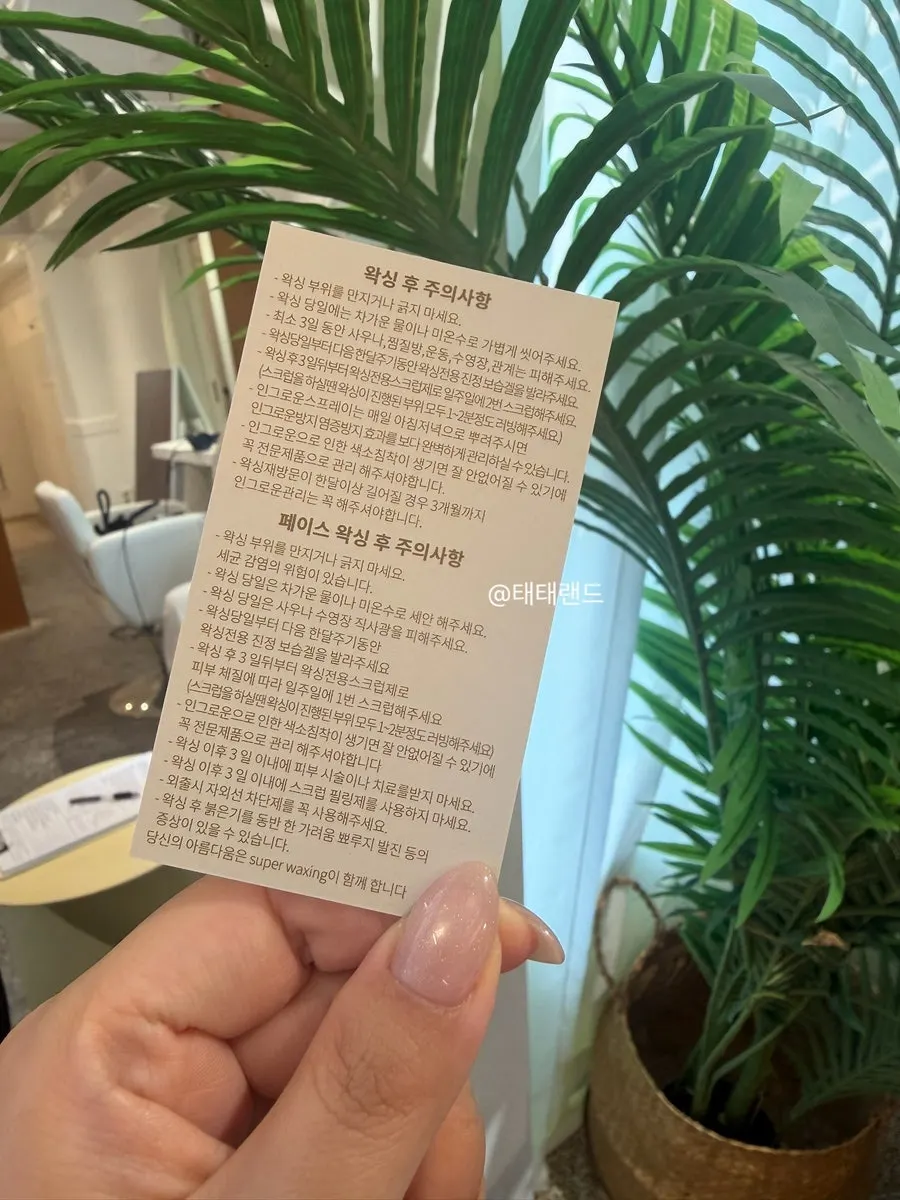 왁싱 후 주의사항
- 왁싱 부위를 만지거나 긁지 마세요.
- 왁싱 당일에는 차가운 물이나 미온수로 가볍게 씻어주세요.
- 최소 3일 동안 사우나, 찜질방, 운동, 수영장, 관계는 피해주세요.
- 왁싱당일부터 다음 한달주기동안 왁싱전용 진정 보습겔을 발라주세요.
- 왁싱 후 3일뒤부터 왁싱전용스크럽제로 일주일에 2번 스크럽해주세요.
(스크럽을 하실땐 왁싱이 진행된 부위 모두 1~2분정도 러빙해주세요)
- 인그로운스프레이는 매일 아침저녁으로 뿌려주시면
인그로운방지 염증방지 효과를 보다 완벽하게 관리하실수 있습니다.
- 인그로운으로 인한 색소침착이 생기면 잘 안없어질 수 있기에
꼭 전문제품으로 관리 해주셔야합니다.
- 왁싱재방문이 한달이상 길어질 경우 3개월까지
인그로운관리는 꼭 해주셔야합니다.
페이스 왁싱 후 주의사항
- 왁싱 부위를 만지거나 긁지 마세요.
세균 감염의 위험이 있습니다.
- 왁싱 당일은 차가운 물이나 미온수로 세안 해주세요.
- 왁싱 당일은 사우나 수영장 직사광을 피해주세요.
- 왁싱당일부터 다음 한달주기동안
왁싱전용 진정 보습겔을 발라주세요
- 왁싱 후 3 일뒤부터 왁싱전용스크럽제로
피부 체질에 따라 일주일에 1번 스크럽해주세요
(스크럽을 하실땐 왁싱이 진행된 부위 모두 1~2분정도 러빙해주세요)
- 인그로운으로 인한 색소침착이 생기면 잘 안없어질 수 있기에
꼭 전문제품으로 관리 해주셔야합니다
- 왁싱 이후 3 일 이내에 피부 시술이나 치료를받지 마세요.
- 왁싱 이후 3 일 이내에 스크럽 필링제를 사용하지 마세요.
- 외출시 자외선 차단제를 꼭 사용해주세요.
- 왁싱 후 붉은기를 동반 한 가려움 뾰루지 발진 등의
증상이 있을 수 있습니다.
당신의 아름다움은 super waxing이 함께 합니다
@태태랜드